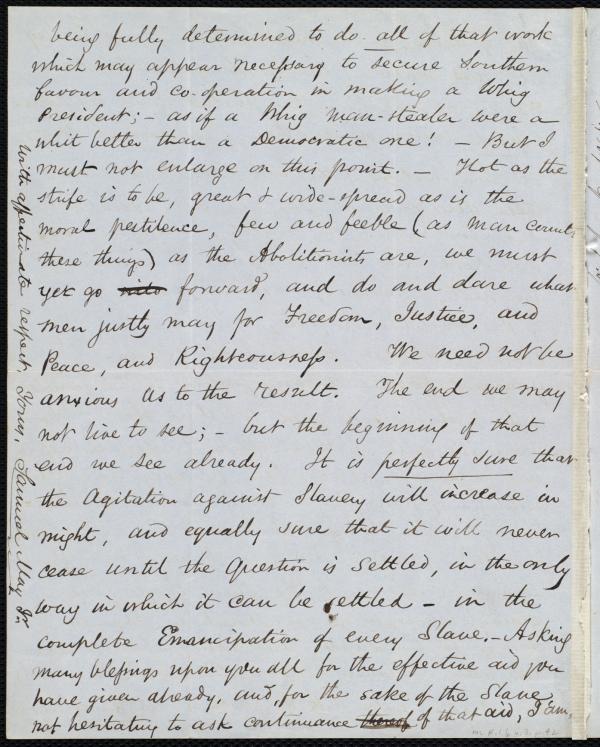 being fully determined to do all of that work
which may appear necessary to secure Southern
favour and co-operation in making a Whig
President; – as if a Whig man-stealer were a
whit better than a Democratic one! – But I
must not enlarge on this point. – Hot as the
strife is to be, great & wide-spread as is the
moral pestilence, few and feeble (as man counts
these things) as the Abolitionists are, we must
yet go into forward, and do and dare what
men justly may for Freedom, Justice, and
Peace, and Righteousness. We need not be
anxious as to the result. The end we may
not live to see; – but the beginning of that
end we see already. It is perfectly sure that
the Agitation against Slavery will increase in
might, and equally sure that it will never
cease until the Question is settled, in the only
way in which it can be settled – in the
complete Emancipation of every Slave. – Asking
many blessings upon you all for the effective aid you
have given already, and, for the sake of the Slave,
not hesitating to ask continuance thereof of that aid, I am,
With affectionate respect, Yours, Samuel May Jr.